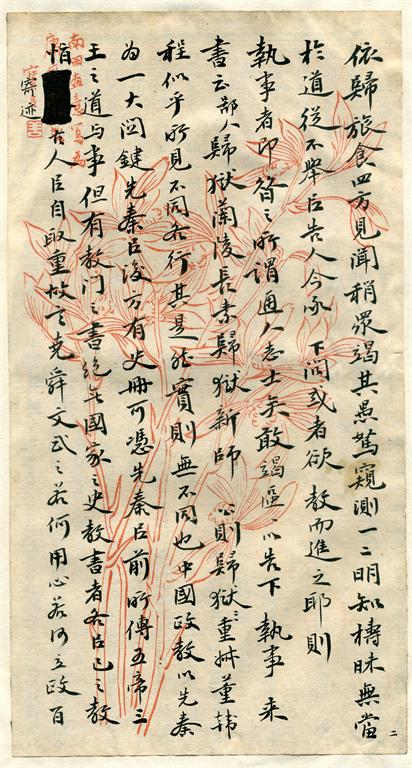 依歸旅食四方見聞稍眾竭其愚駑窺測一二明知檮昧無當
於道從不舉以告人今承 下問或者欲教而進之耶則
執事者即答之所謂通人志士矣敢竭區區以告下執事 來
書云部人歸獄蘭陵長素歸獄新師 公則歸獄 董韓
程似乎所見不同各行其是然實則無不同也中國政教以先秦
為一大関鍵先秦以後方有史冊可憑先秦以前所傳五帝三
王之道与事但有教門之書絕無國家之史教書者各以己之教
恉寄迹古人以自取重故言堯舜文武之若何用心若何立政百
二